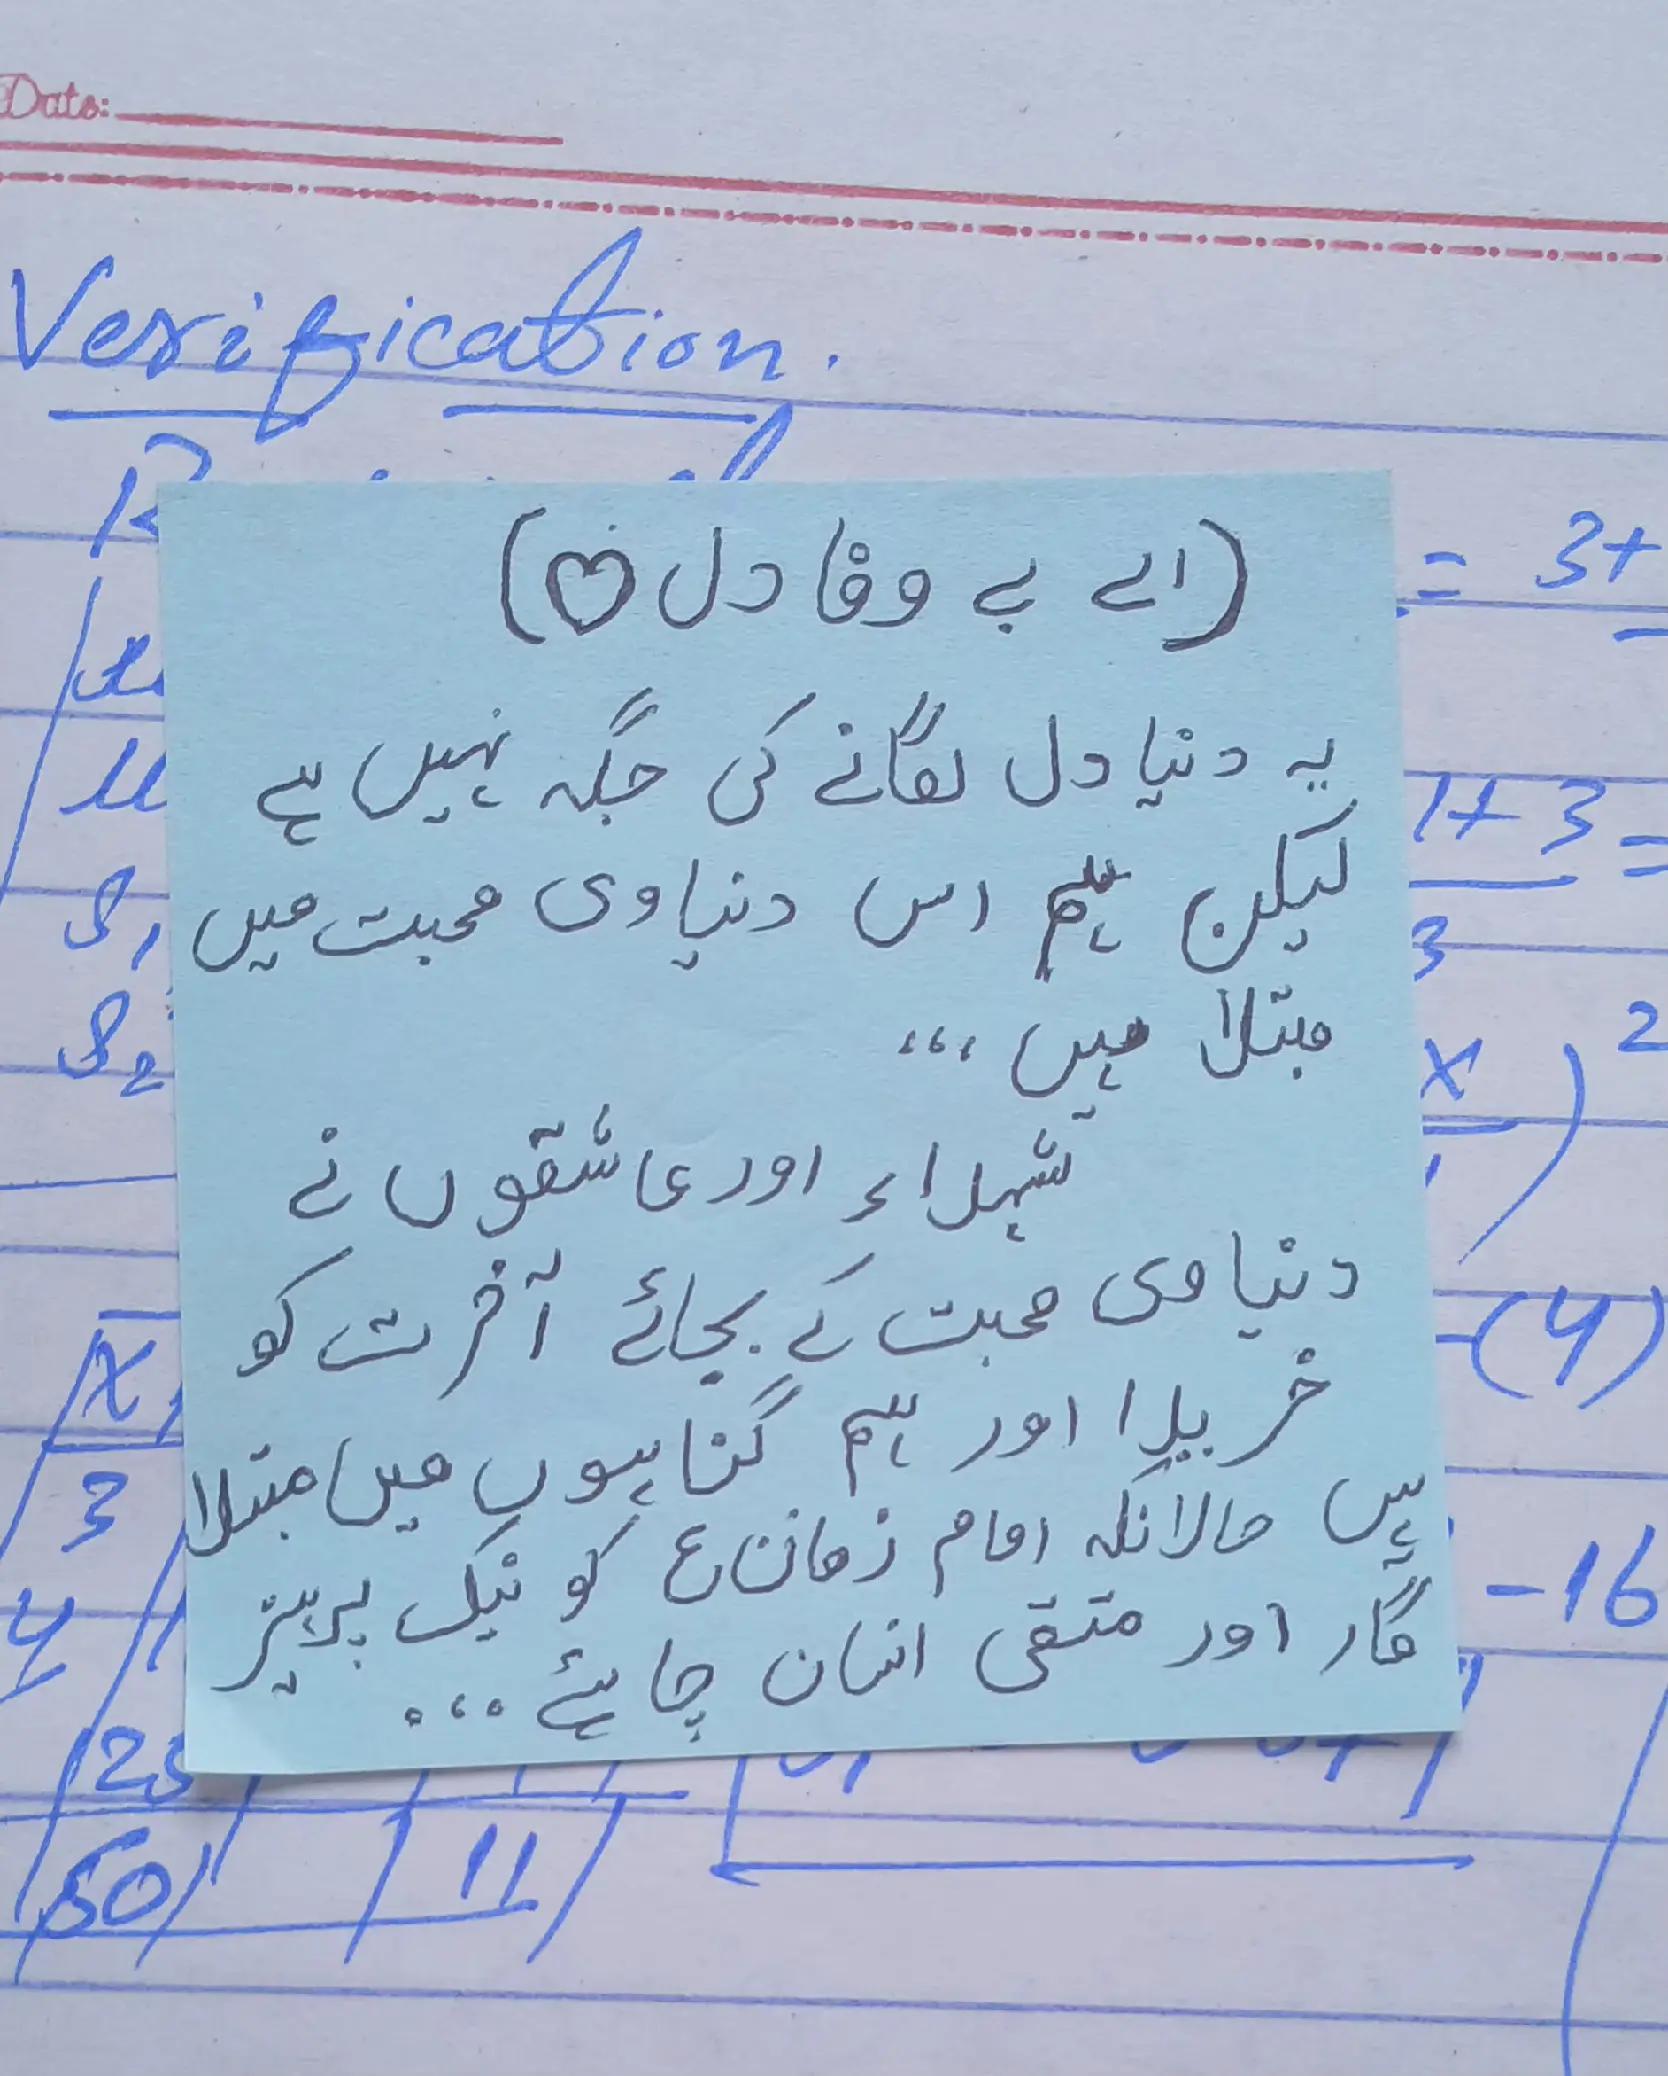 Date:
Verification.
= 3+
(اے بے وفا دل ♡)
یہ دنیا دل لگانے کی جگہ نہیں ہے
1+3 =
لیکن ہم اس دنیاوی محبت میں
S1
3
مبتلا ہیں ،،،
S2
x ) 2
شہداء اور عاشقوں نے
دنیاوی محبت کے بجائے آخرت کو
-(4)
x
خریدا اور ہم گناہوں میں مبتلا
3
ہیں حالانکہ امام زمانہ ع کو نیک پرہیز
-16
گار اور متقی انسان چاہئے ۔،،۔
y
25
50 11